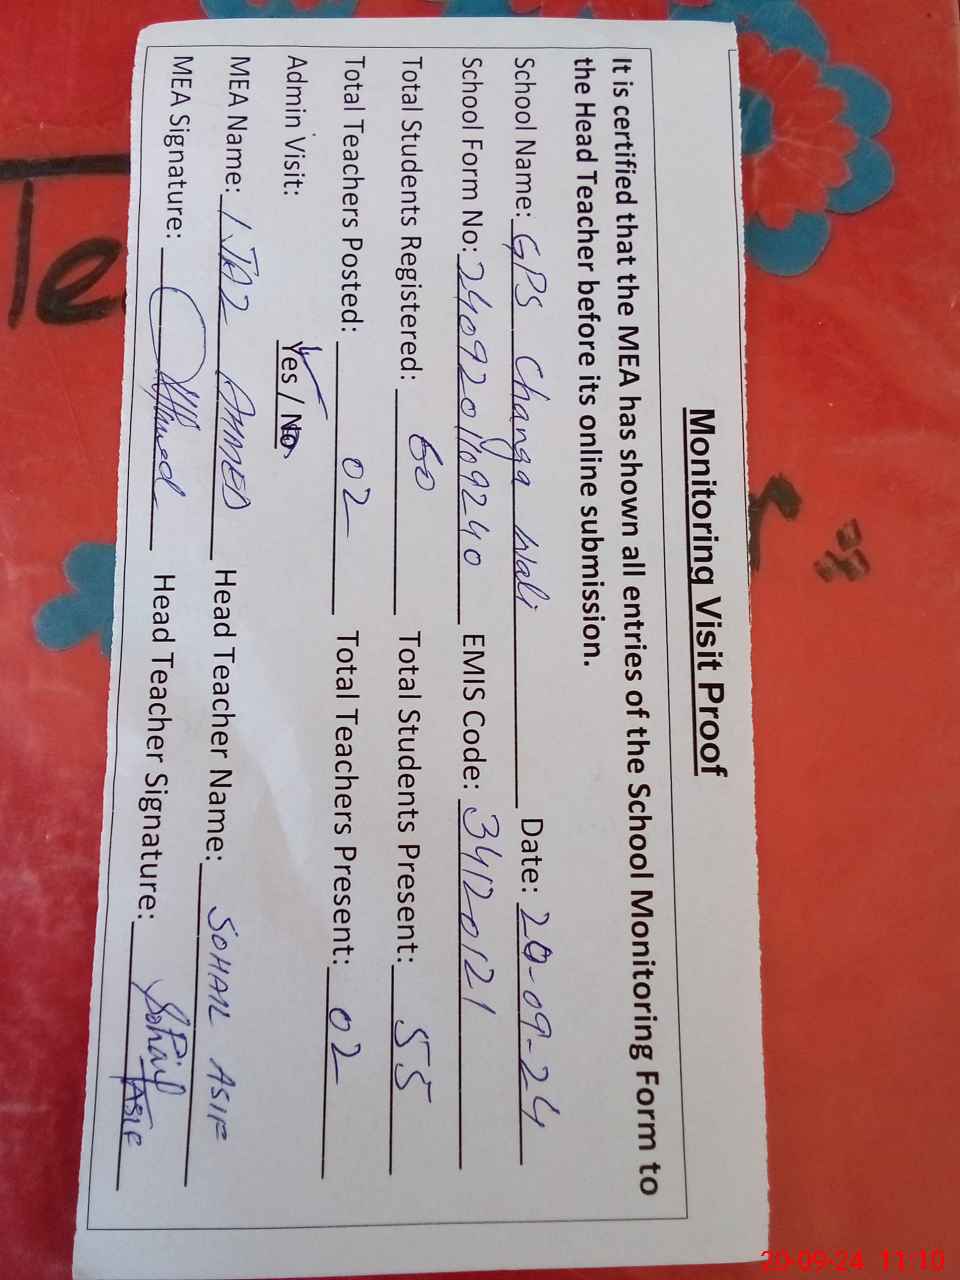 Monitoring Visit Proof
It is certified that the MEA has shown all entries of the School Monitoring Form to
the Head Teacher before its online submission.
School Name: GPS Changa Wali Date: 20-09-24
School Form No: EMIS Code: 34120121
Total Students Registered: 60 Total Students Present: 55
Total Teachers Posted: 02 Total Teachers Present: 02
Admin Visit: Yes / No
MEA Name: IJAZ AHMED Head Teacher Name: SOHAIL ASIF
MEA Signature: Ahmed Head Teacher Signature: Sohail ASIF
Te
20-09-24 11:10